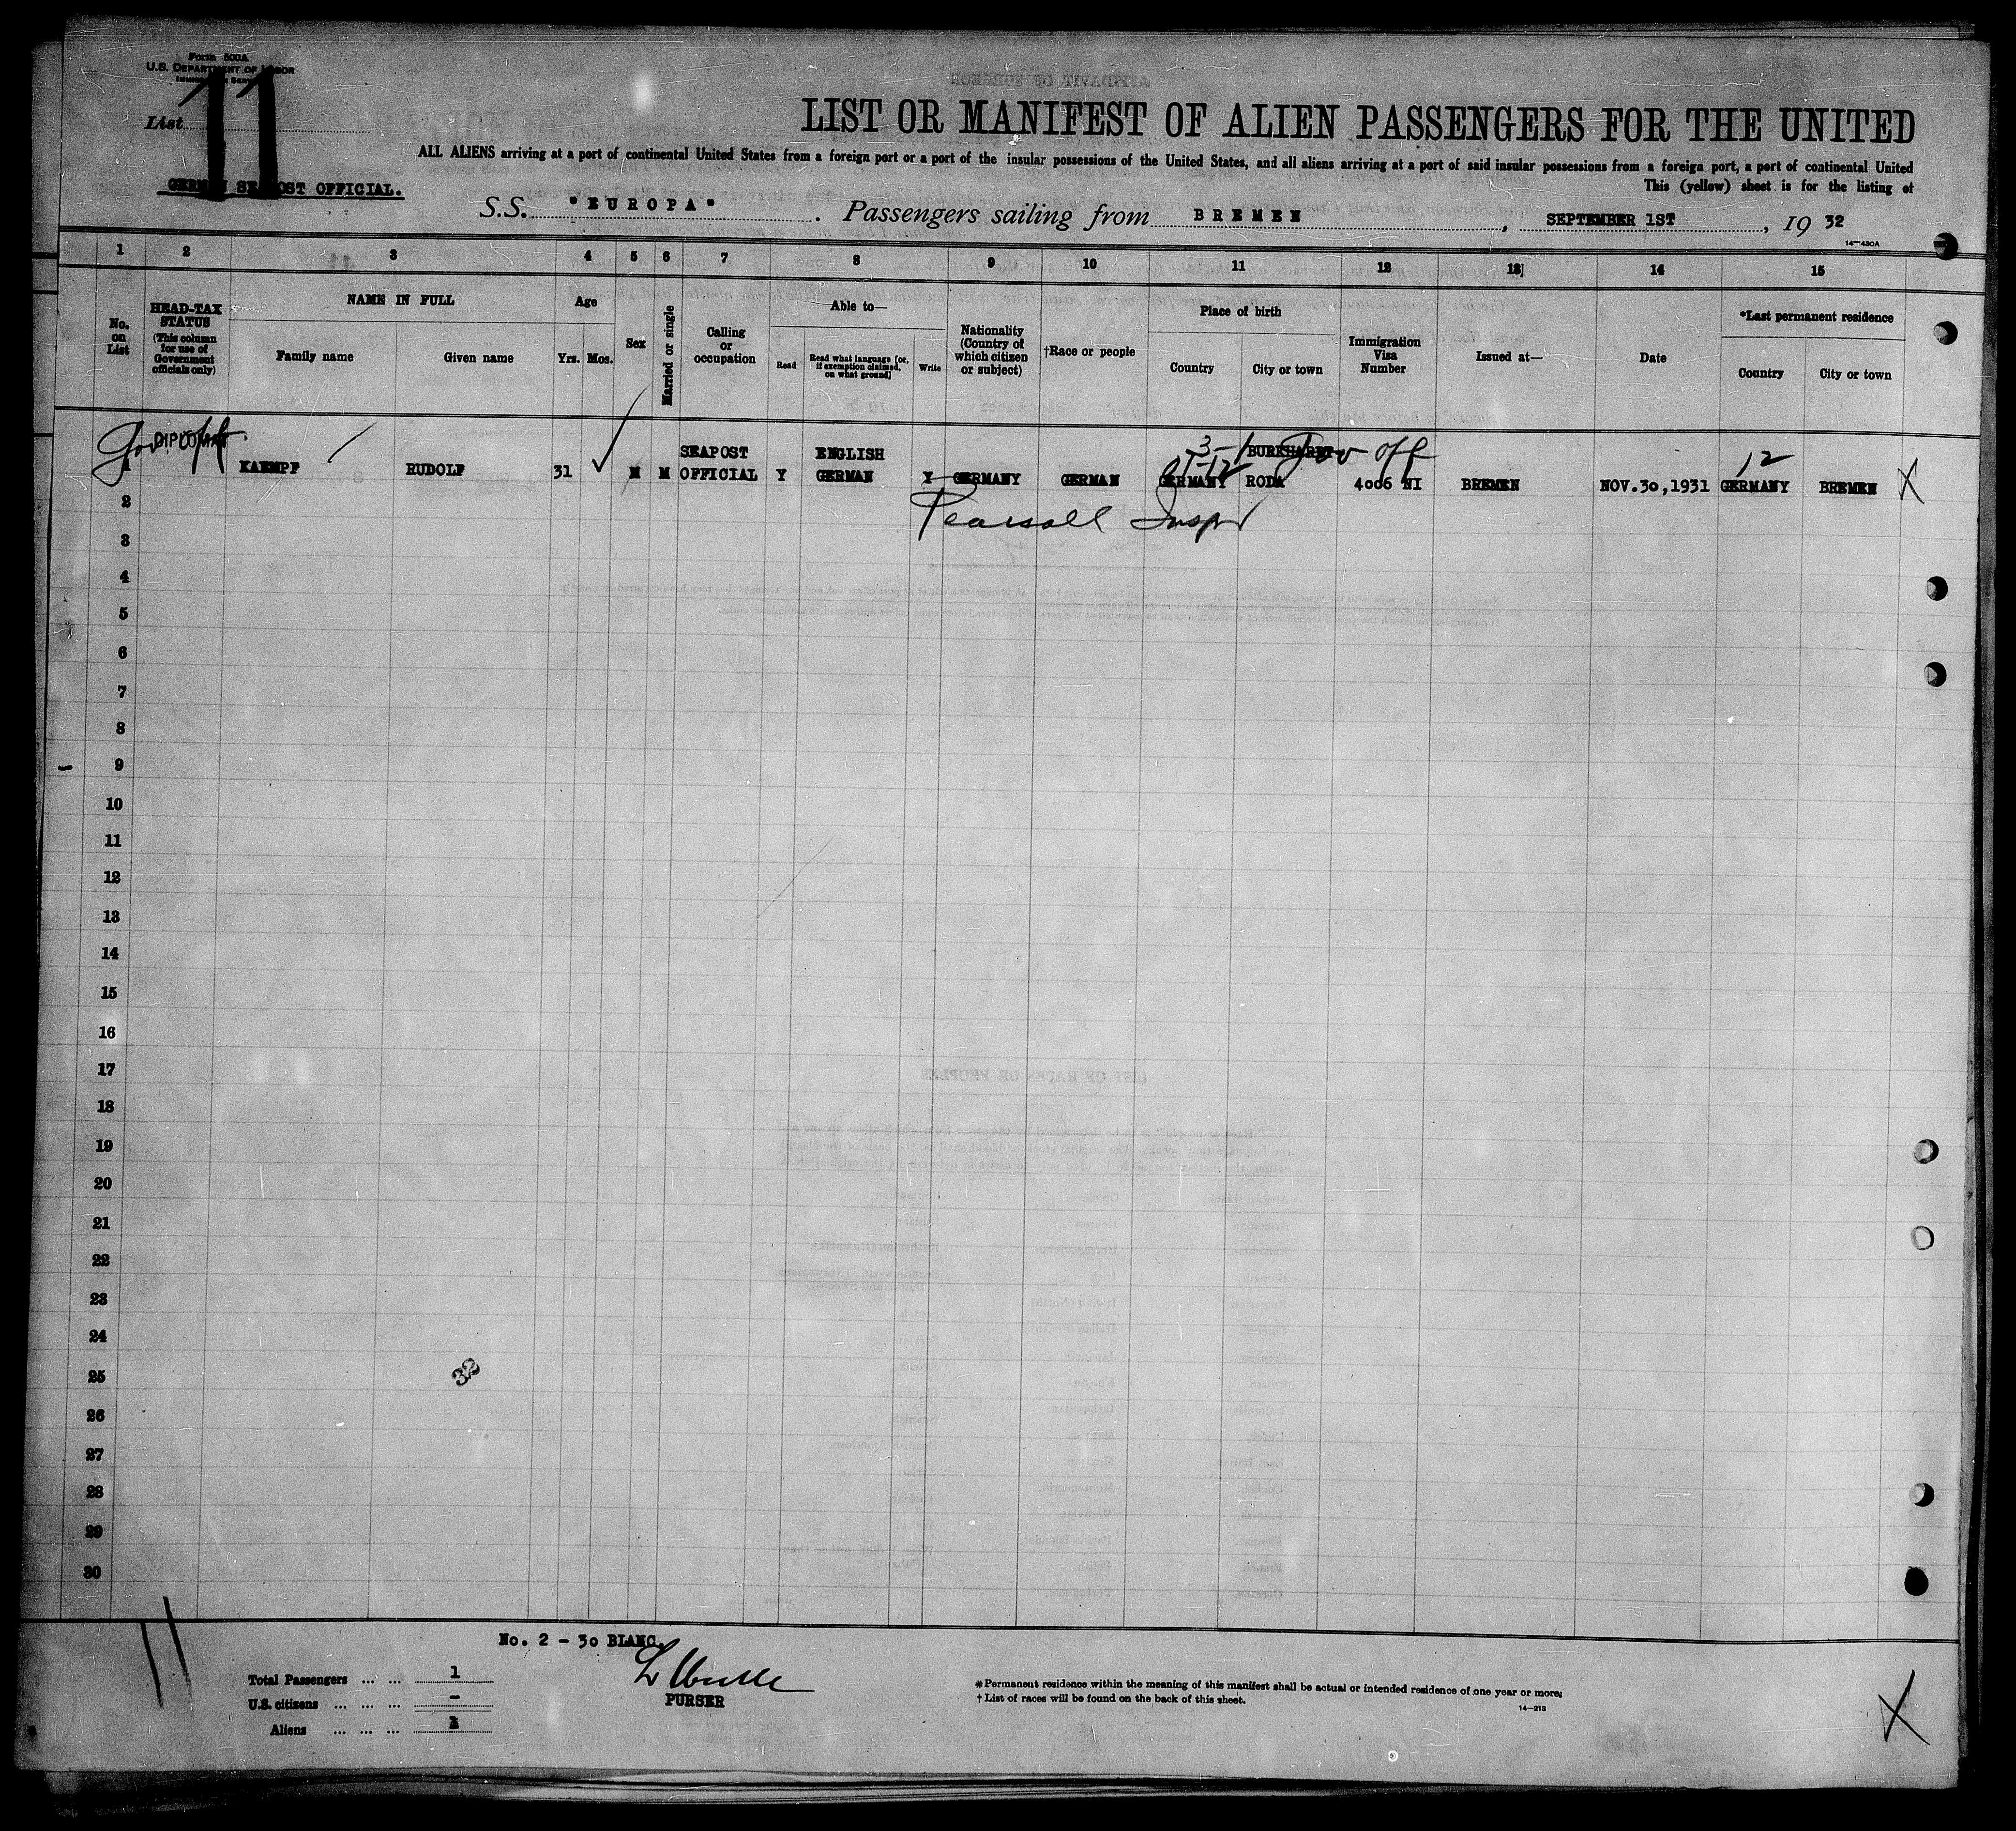 Form 500A
U.S. DEPARTMENT OF LABOR
List 11
GERMAN SEAPOST OFFICIAL.
LIST OR MANIFEST OF ALIEN PASSENGERS FOR THE UNITED
ALL ALIENS arriving at a port of continental United States from a foreign port or a port of the insular possessions of the United States, and all aliens arriving at a port of said insular possessions from a foreign port, a port of continental United
This (yellow) sheet is for the listing of
S.S. "EUROPA". Passengers sailing from BREMEN, SEPTEMBER 1ST, 1932
14—430A
1 2 3 4 5 6 7 8 9 10 11 12 13 14 15
No. on List
HEAD-TAX STATUS (This column for use of Government officials only)
NAME IN FULL
Family name Given name
Age
Yrs. Mos.
Sex
Married or single
Calling or occupation
Able to—
Read Read what language [or, if exemption claimed, on what ground] Write
Nationality (Country of which citizen or subject)
†Race or people
Place of birth
Country City or town
Immigration Visa Number
Issued at—
Date
*Last permanent residence
Country City or town
Gov Off DIPLOMAT 3-1 BURKHARDT Gov Off 12
1 KAEMPF RUDOLF 31 M M SEAPOST OFFICIAL Y ENGLISH GERMAN Y GERMANY GERMAN GERMANY RODA 4006 NI BREMEN NOV.30,1931 GERMANY BREMEN X
Pearsall Inspr
2
3
4
5
6
7
8
9
10
11
12
13
14
15
16
17
18
19
20
21
22
23
24
25
26
27
28
29
30
32
No. 2 - 30 BLANC.
11
Total Passengers ... ... 1
U.S. citizens ... ... ... -
Aliens ... ... ... 1
PURSER
*Permanent residence within the meaning of this manifest shall be actual or intended residence of one year or more.
† List of races will be found on the back of this sheet.
14—213
X